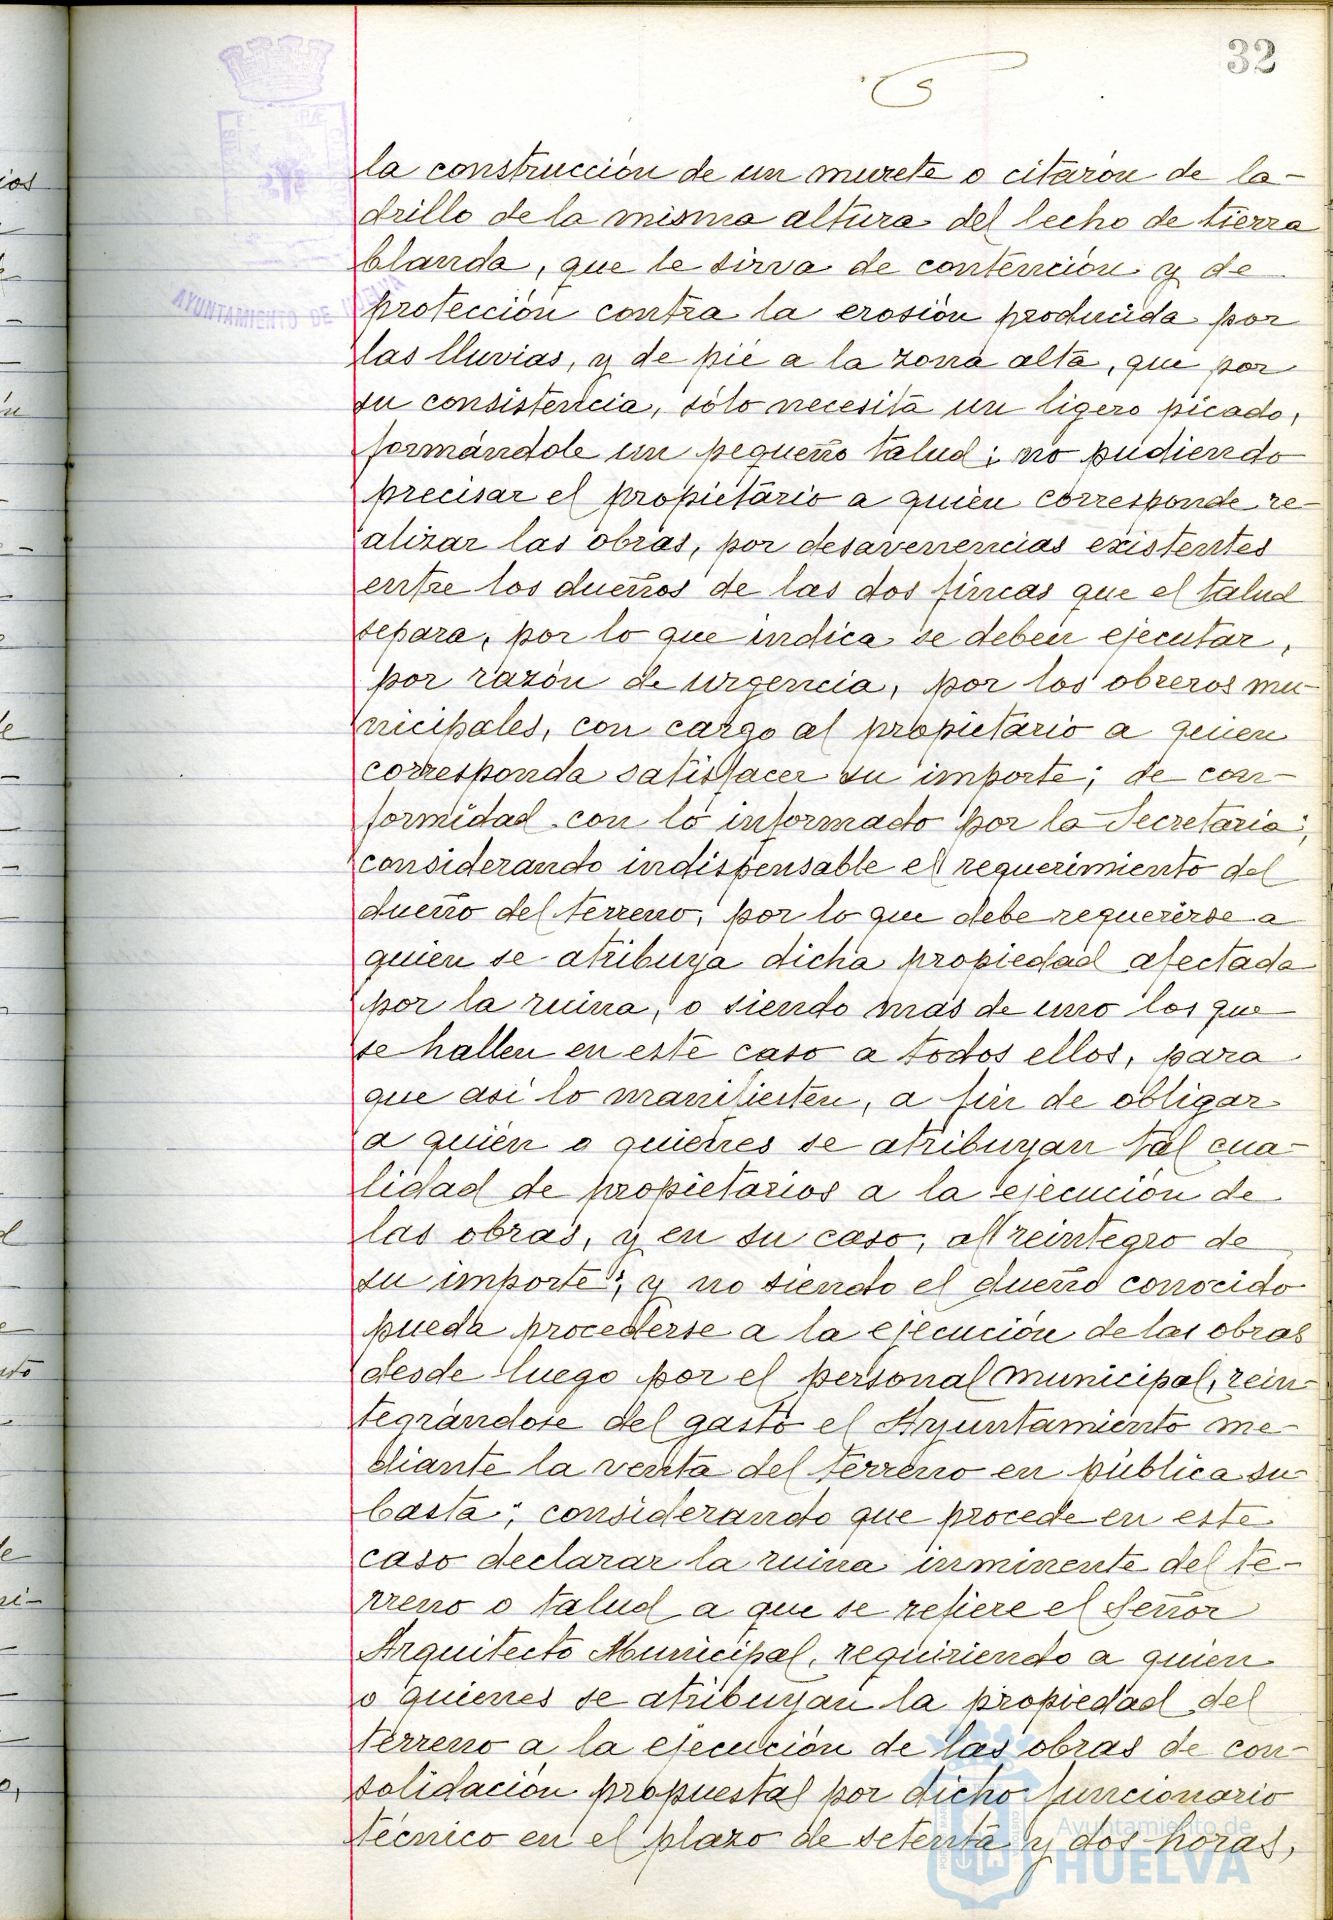 32
la construcción de un murete o citarón de la-
drillo de la misma altura del lecho de tierra
blanda, que le sirva de contención y de
protección contra la erosión producida por
las lluvias, y de pié a la zona alta, que por
su consistencia, sólo necesita un ligero picado,
formándole un pequeño talud; no pudiendo
precisar el propietario a quién corresponde re-
alizar las obras, por desavenencias existentes
entre los dueños de las dos fincas que el talud
separa, por lo que indica se deben ejecutar,
por razón de urgencia, por los obreros mu-
nicipales, con cargo al propietario a quien
corresponda satisfacer su importe; de con-
formidad con lo informado por la Secretaria;
considerando indispensable el requerimiento del
dueño del terreno, por lo que debe requerirse a
quien se atribuya dicha propiedad afectada
por la ruina, o siendo más de uno los que
se hallen en este caso a todos ellos, para
que así lo manifiesten, a fin de obligar
a quién o quienes se atribuyan tal cua-
lidad de propietarios a la ejecución de
las obras, y en su caso, al reintegro de
su importe; y no siendo el dueño conocido
pueda procederse a la ejecución de las obras
desde luego por el personal municipal, rein-
tegrándose del gasto el Ayuntamiento me-
diante la venta del terreno en pública su-
basta; considerando que procede en este
caso declarar la ruina inminente del te-
rreno o talud a que se refiere el Señor
Arquitecto Municipal, requiriendo a quien
o quienes se atribuyan la propiedad del
terreno a la ejecución de las obras de con-
solidación propuestas por dicho funcionario
técnico en el plazo de setenta y dos horas,
AYUNTAMIENTO DE HUELVA
Ayuntamiento de
HUELVA